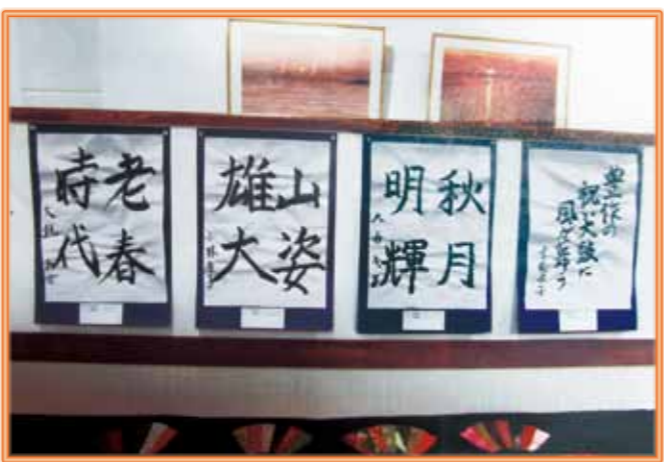 老春
時代
山姿
雄大
秋月
明輝
豊作の
祝い太鼓に
風が舞う